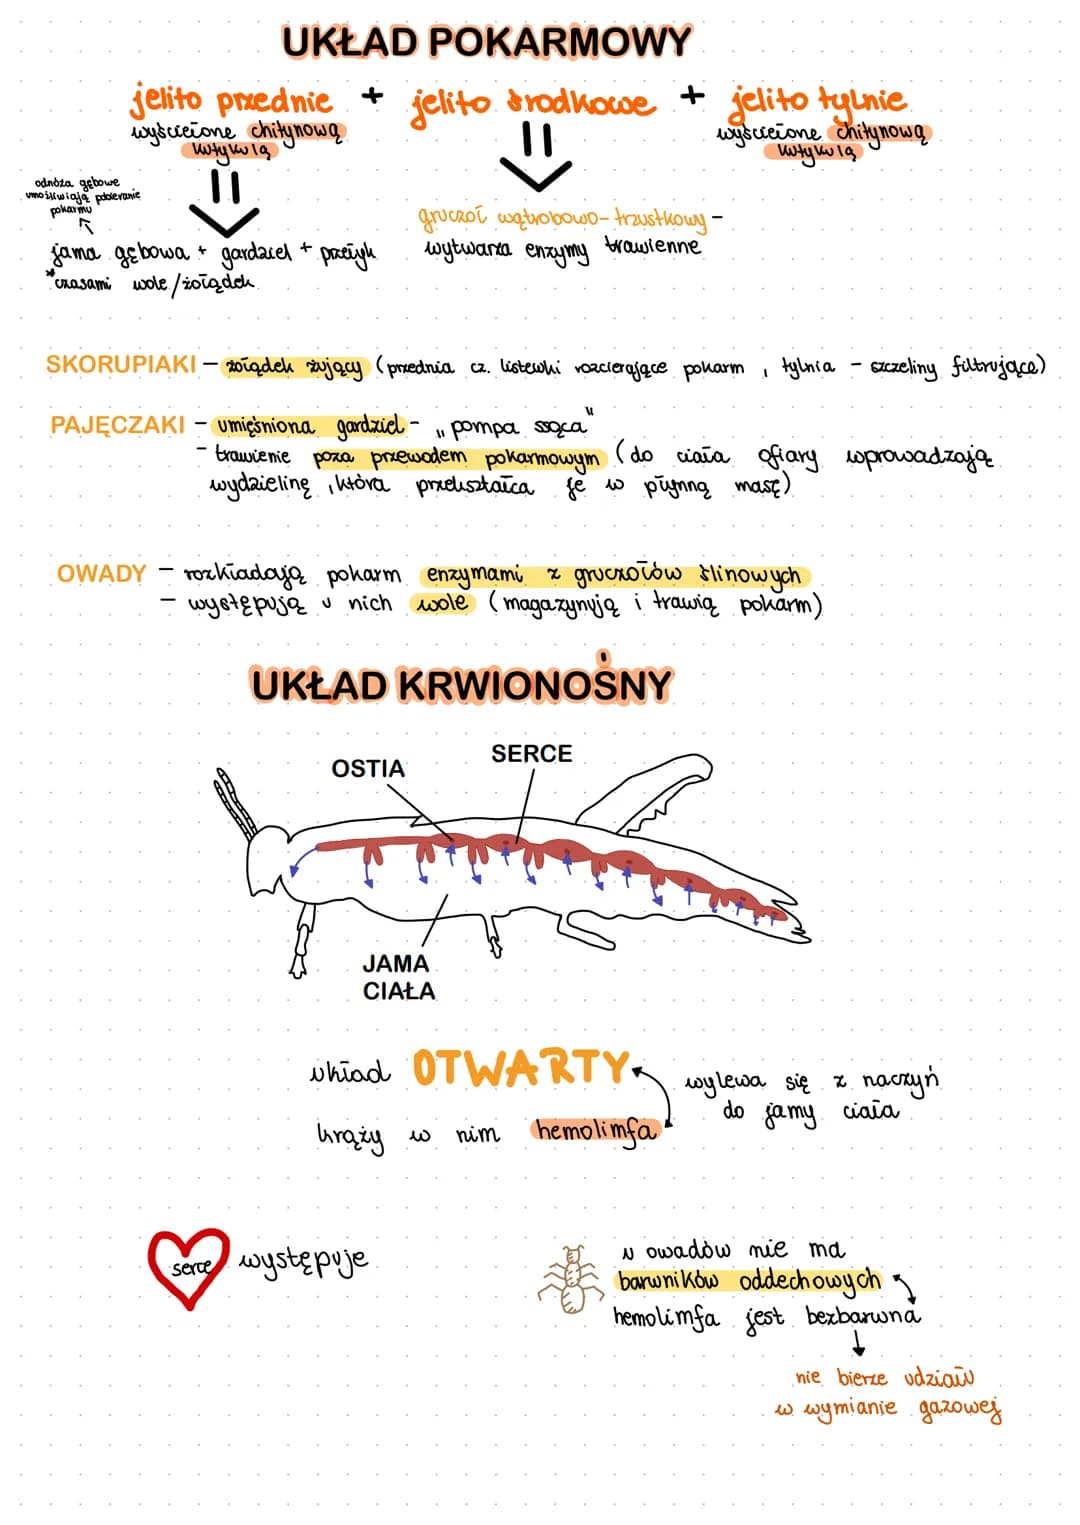 UKŁAD POKARMOWY
jelito przednie + jelito środkowe + jelito tylnie
wyścielone chitynową
kutykulą
wyścielone chitynową
kutykulą
odnóża gębowe
umożliwiają pobieranie
pokarmu
jama gębowa + gardziel + przełyk
*czasami wole/żołądek
gruczoł wątrobowo-trzustkowy -
wytwarza enzymy trawienne
SKORUPIAKI - żołądek żujący (przednia cz. listewki rozcierające pokarm, tylnia - szczeliny filtrujące)
PAJĘCZAKI - umięśniona gardziel - „pompa ssąca"
- trawienie poza przewodem pokarmowym (do ciała ofiary wprowadzają
wydzielinę, która przekształca je w płynną masę)
OWADY - rozkładają pokarm enzymami z gruczołów ślinowych
- występują u nich wole (magazynują i trawią pokarm)
UKŁAD KRWIONOŚNY
OSTIA
SERCE
JAMA
CIAŁA
układ OTWARTY
krąży w nim hemolimfa
wylewa się z naczyń
do jamy ciała
serce występuje
u owadów nie ma
barwników oddechowych
hemolimfa jest bezbarwna
nie bierze udziału
w wymianie gazowej